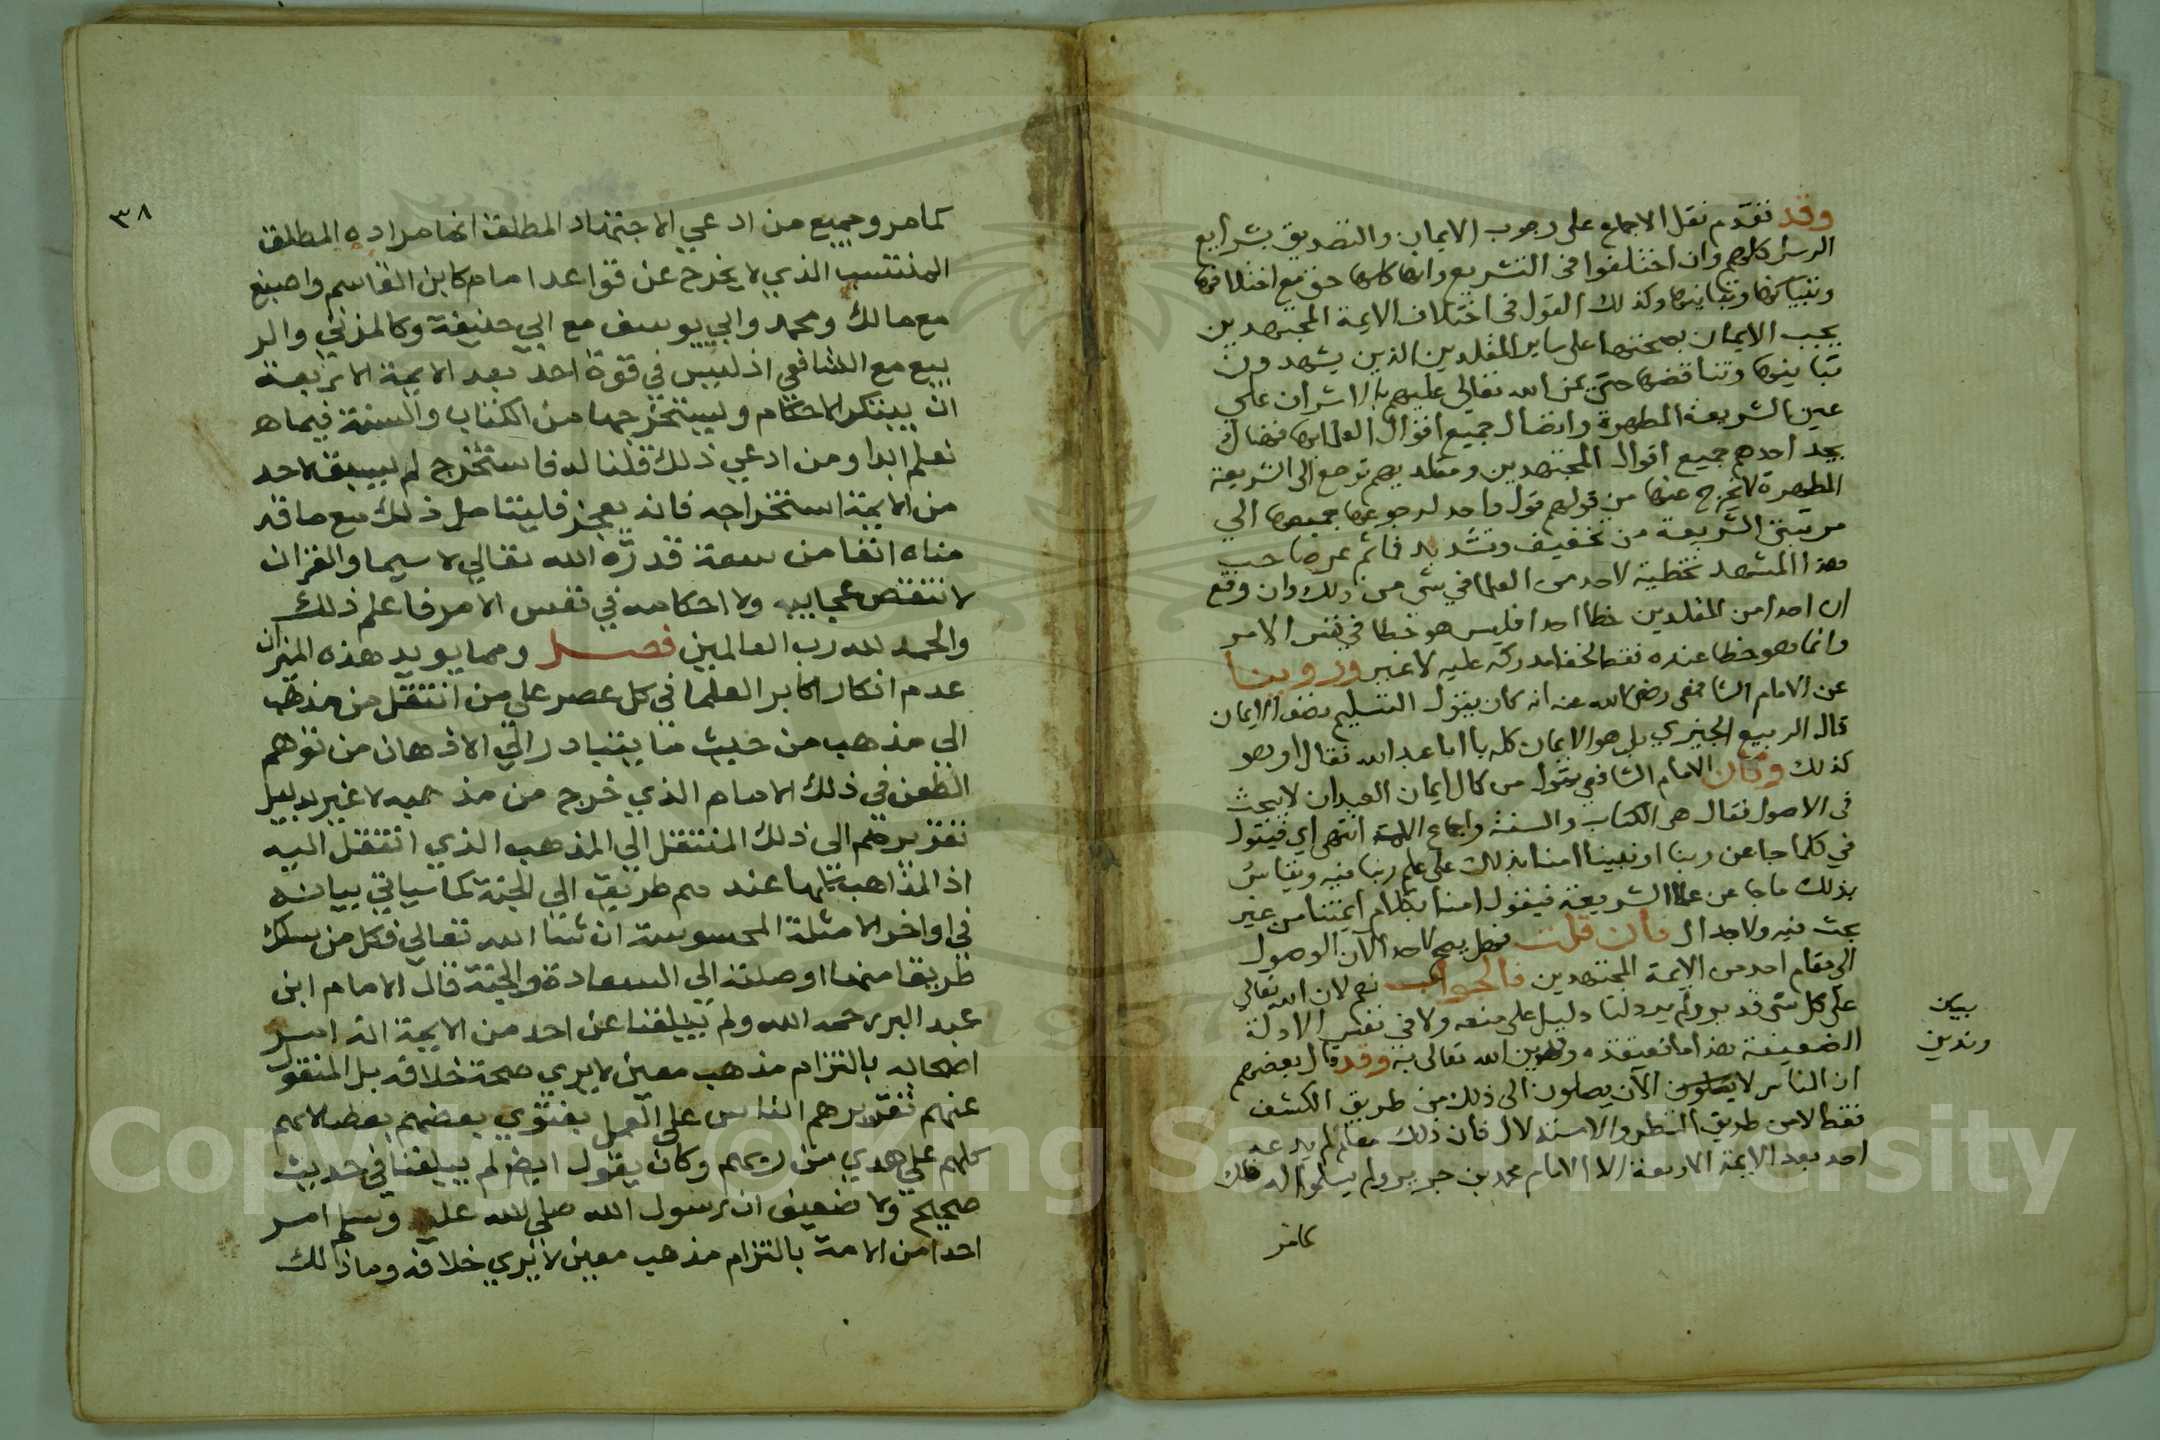 وقد تقدم نقل الاجماع على وجوب الايمان والتصديق بشرايع
الرسل كلهم وان اختلفوا في التشريع وانها كلها حق مع اختلافها
وتباينها وكذلك القول في اختلاف الايمة المجتهدين
يجب الايمان بصحتها على ساير المقلدين الذين يشهدون
تباينها وتناقضها حتى يمن الله تعالى عليهم بالاشراف على
عين الشريعة المطهرة واتصال جميع اقوال العلما بها فهناك
يجد احدهم جميع اقوال المجتهدين ومقلديهم ترجع الى الشريعة
المطهرة لا يخرج عنها من قولهم قول واحد لرجوعها جميعها الي
مرتبتي الشريعة من تخفيف وتشديد فاثم عمر صاحب
هذا المشهد تخطية لاحد من العلما في شي من ذلك وان وقع
ان احدا من المقلدين خطا احدا فليس هو خطا في نفس الامر
وانما هو خطا عنده فقط لخفا مدركه عليه لا غير وروينا
عن الامام الشافعي رضي الله عنه انه كان يقول التسليم نصف الايمان
قال الربيع الجيزي بل هو الايمان كله يا ابا عبد الله فقال او هو
كذلك وكان الامام الشافعي يقول من كمال ايمان العبد ان لا يبحث
في الاصول فقال هي الكتاب والسنة واجماع الامة انتهى اي فيقول
في كلما جا عن ربنا او نبينا امنا بذلك على علم ربنا فيه ويقاس
بذلك ما جا عن علما الشريعة فيقول امنا بكلام ايمتنا من غير
بحث فيه ولا جدال فان قلت فهل يصح لاحد الآن الوصول
الى مقام احد من الايمة المجتهدين فالجواب نعم لان الله تعالي
على كل شي قدير ولم يرد لنا دليل على منعه ولا في نفس الادلة
الضعيفة هذا ما نعتقده وندين الله تعالى به وقد قال بعضهم
ان الناس لا يصلون الآن يصلون الى ذلك من طريق الكشف
فقط لا من طريق النظر والاستدلال فان ذلك مقام لم يدعه
احد بعد الايمة الاربعة الا الامام محمد بن جرير ولم يسلموا له ذلك
كامر
بيان
وندين
٣٨
كما مر وجميع من ادعي الاجتهاد المطلق انما مراده المطلق
المنتسب الذي لا يخرج عن قواعد امام كابن القاسم واصبغ
مع مالك ومحمد وابي يوسف مع ابي حنيفة وكالمزني والر
بيع مع الشافعي اذ ليس في قوة احد بعد الايمة الاربعة
ان يبتكر الاحكام ويستخرجها من الكتاب والسنة فيما
نعلم ابدا ومن ادعي ذلك قلنا له فاستخرج لم يسبق لاحد
من الايمة استخراجه فانه يعجز فليتامل ذلك مع ما قد
مناه انفا من سعة قدرة الله تعالي لا سيما والقران
لا تنقض عجايبه ولا احكامه في نفس الامر فاعلم ذلك
والحمد لله رب العالمين فصل ومما يويد هذه الميزان
عدم انكار اكابر العلما في كل عصر علي من انتقل من مذهب
الي مذهب من حيث ما يتبادر الي الاذهان من توهم
الطعن في ذلك الامام الذي خرج من مذهبه لا غير بدليل
تقريرهم الى ذلك المنتقل الي المذهب الذي انتقل اليه
اذ المذاهب كلها عندهم طريق الي الجنة كما سياتي بيانه
في اواخر الامثلة المحسوسة ان شا الله تعالي فكل من سلك
طريقا منها اوصلته الي السعادة والجنة قال الامام ابن
عبد البر رحمه الله ولم يبلغنا عن احد من الايمة انه امر
اصحابه بالتزام مذهب معين لا يري صحة خلافه بل المنقول
عنهم تقريرهم الناس علي العمل بفتوي بعضهم بعضا لانهم
كلهم علي هدي من ربهم وكان يقول ايضا لم يبلغنا في حديث
صحيح ولا ضعيف ان رسول الله صلي الله عليه وسلم امر
احدا من الامة بالتزام مذهب معين لا يري خلافه وما ذالك
Copyright © King Saud University